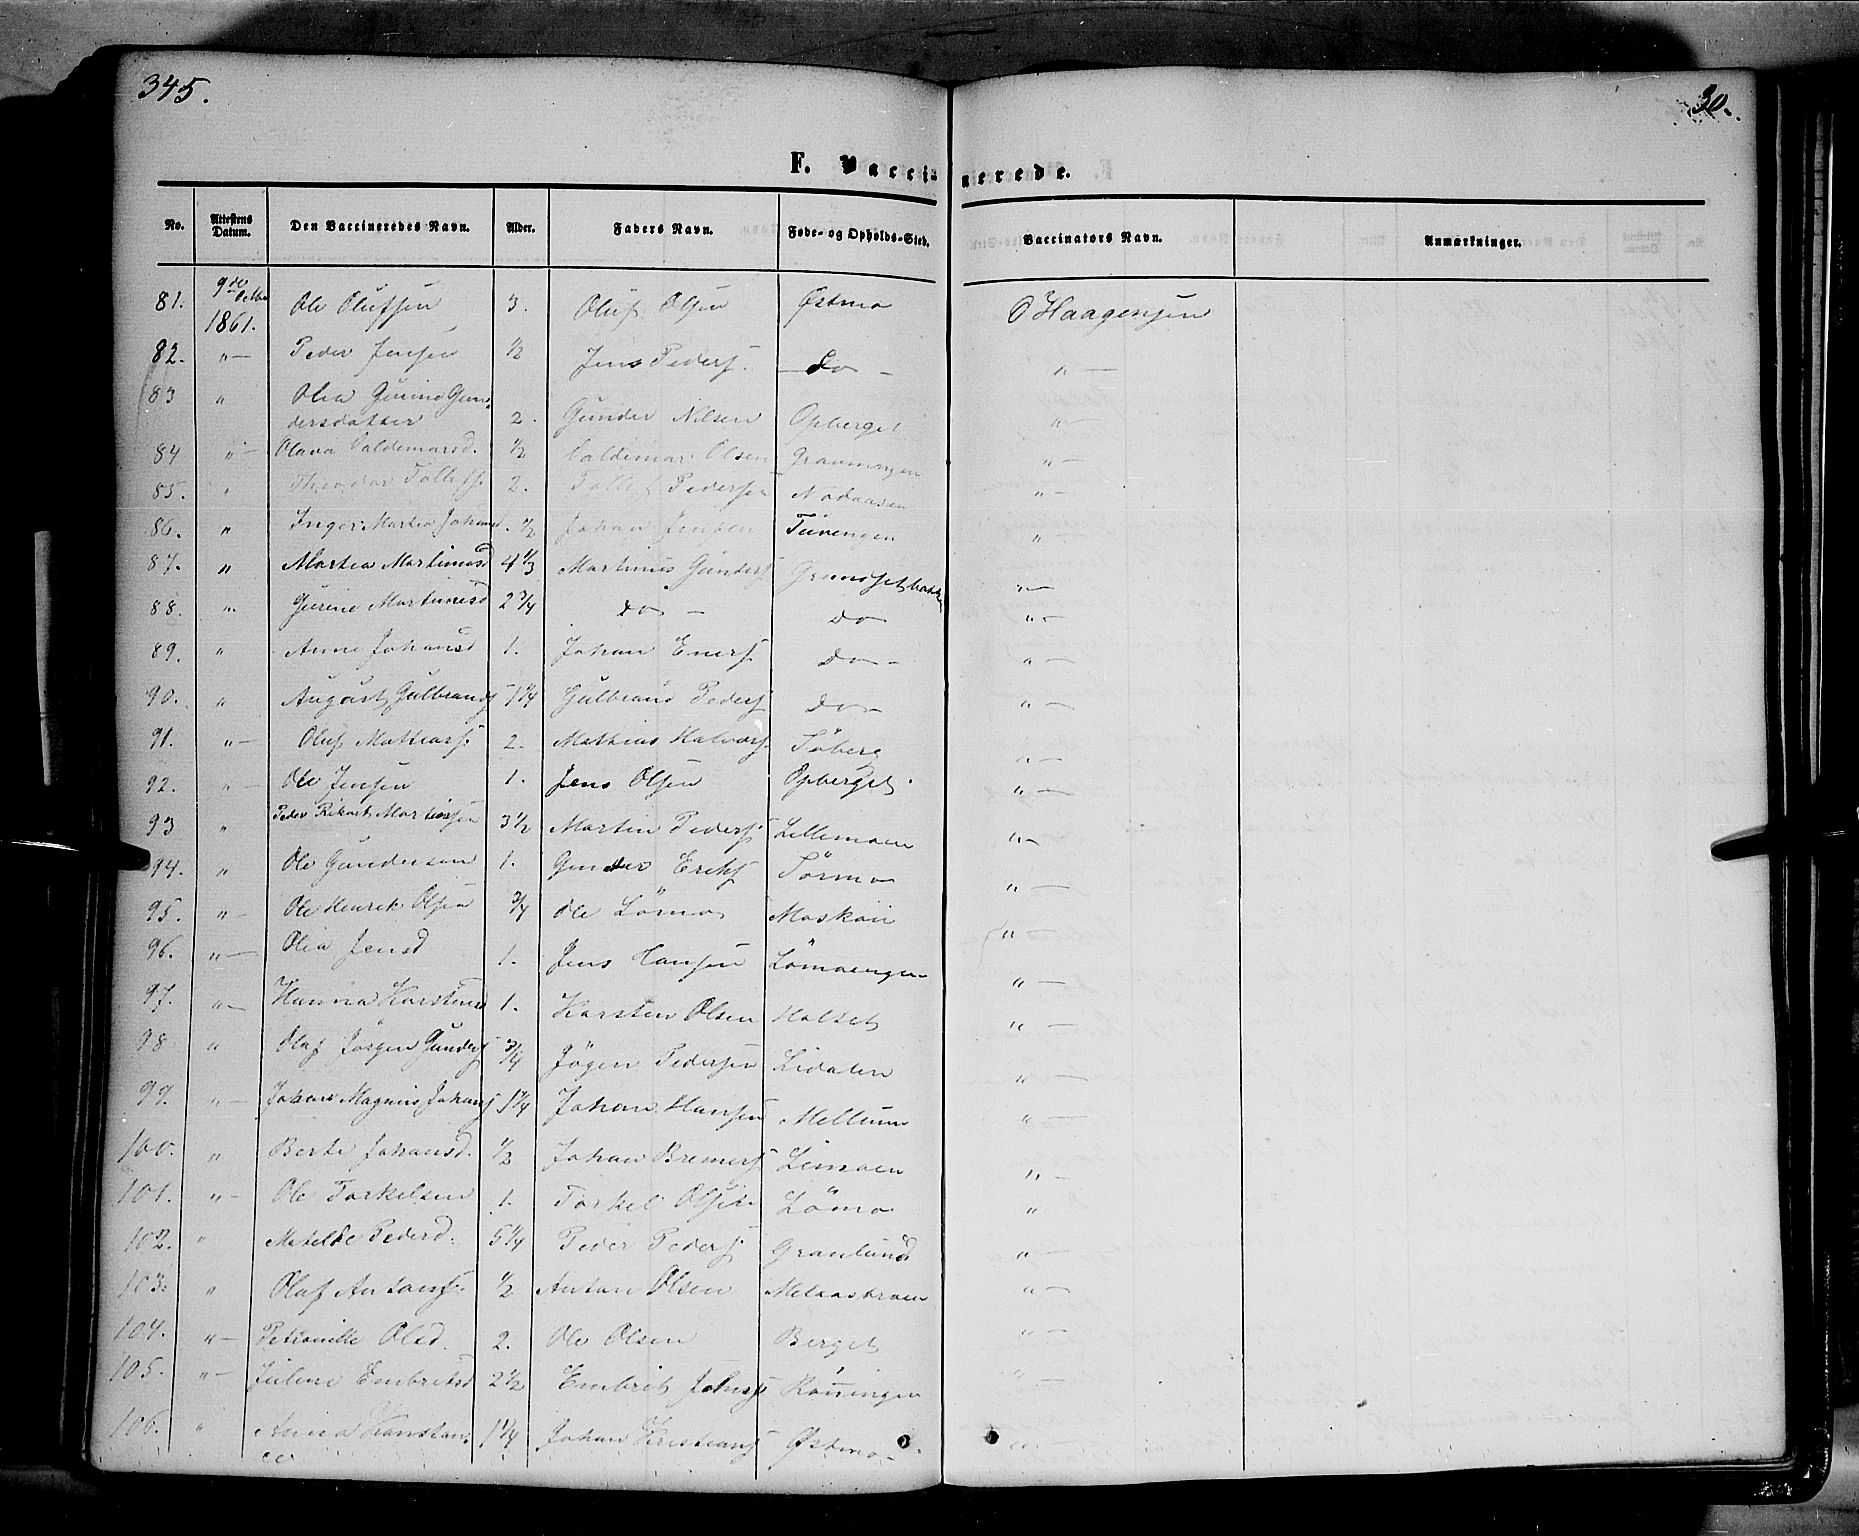 345.
30.
F. Vaccinerede.
No. Attestens Datum. Den Vaccineredes Navn. Alder. Faders Navn. Føde- og Opholds-Sted. Vaccinators Navn. Anmærkninger.
81. 9de Octbr 1861. Ole Olufsen 3. Oluf Olsen Østmo O Haagensen
82. "— Peder Jensen 1/2 Jens Peders. Do — "—
83 " Olia Gurine Gundersdatter 2. Gunder Nilsen Opberget "
84 "— Olava Valdemarsd. 1/2 Valdemar Olsen Gravningen "—
85. " Theodor Tollefs. 2. Tollef Pedersen "—
86. " Inger Martea Johansd. 1/2 Johan Jensen "—
87. " Martea Martinusd 4 1/3 Martinus Gunders Grundsetbakk "—
88. " Gurine Martinusd 2 3/4 do — do "—
89. " Anne Johansd 1. Johan Eners do — "—
90. " August Gulbrands 1 1/4 Gulbrand Peders do — "—
91. "— Oluf Mathias. 2. Mathias Halvors. Söberg "—
92. "— Ole Jensen 1. Jens Olsen Opberget "—
93 " Peder Rikart Martinsen 3 1/2 Martin Peders. Lillemoen "—
94. " Ole Gundersen 1. Gunder Eriks Törmo "—
95. "— Ole Henrik Olsen 3/4 Ole Lömo Moskoii "—
96. "— Olia Jensd 1. Jens Hansen Lömoengen "—
97. "— Hanna Karstensd 1. Karsten Olsen Holset "—
98 " Olaf Jörgen Gunders 3/4 Jögen Pedersen Lidalen "—
99. "— Johan Magnus Johans 1 1/4 Johan Hansen Mellum "—
100. " Berte Johansd. 1/2 Johan Bremers Lemoen "—
101. "— Ole Torkelsen 1. Torkel Olsen Lömo "
102. " Matilde Pedersd. 5 1/4 Peder Peders Granlund "—
103. " Olaf Antons. 1/2 Anton Olsen Melaasbraen "—
104. "— Petronille Olsd. 2. Ole Olsen Berget "—
105. "— Juline Embretsd 2 1/2 Embret Johns Röningen "—
106. " Anna Konstance 1 1/4 Johan Kristians Østmo "—